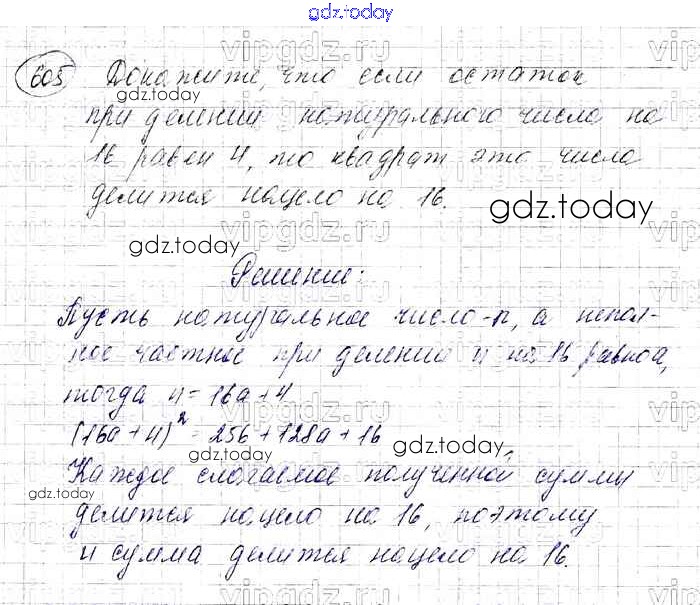 gdz.today
605 Докажите, что если остаток
gdz.today
при делении натурального числа на
16 равен 4, то квадрат это числа
делится нацело на 16.
gdz.today
gdz.today
Решение:
Пусть натуральное число - n, а непол-
ное частное при делении n на 16 равно a,
gdz.today
тогда n = 16a + 4
(16a + 4)² = 256 + 128a + 16
gdz.today
Каждое слагаемое полученной суммы
gdz.today
делится нацело на 16, поэтому
и сумма делится нацело на 16.